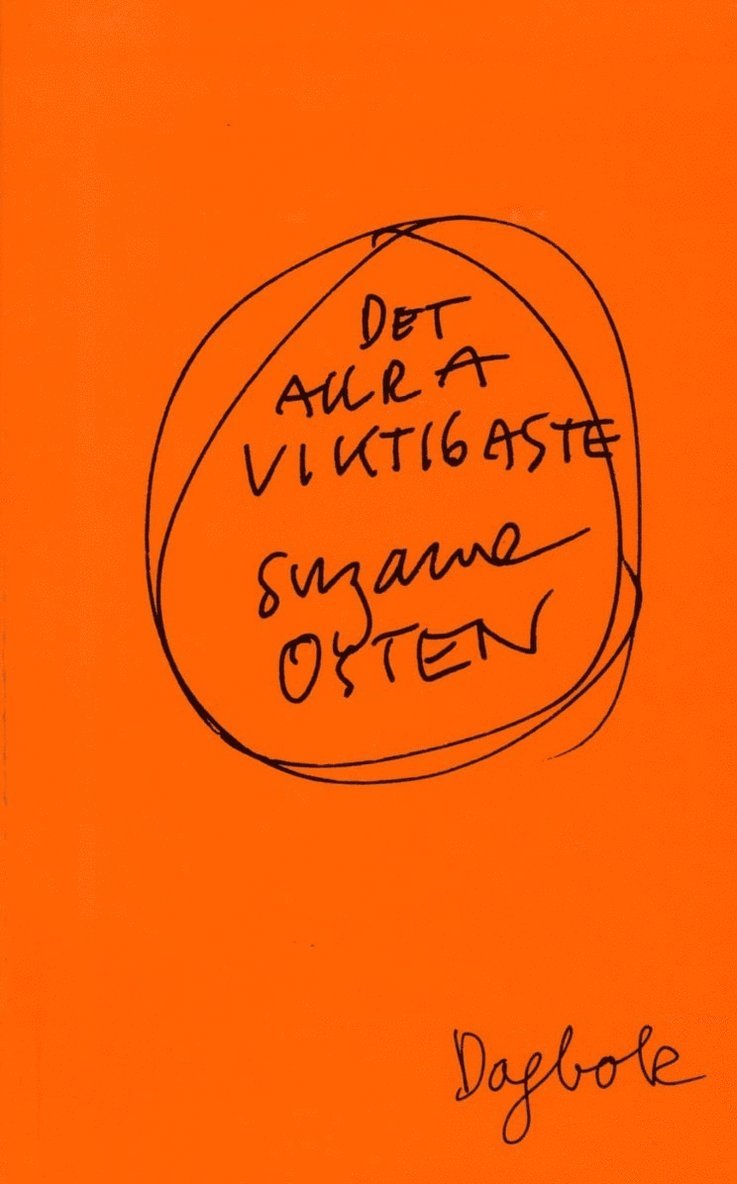 DET
ALLRA
VIKTIGASTE
Suzanne
OSTEN
Dagbok